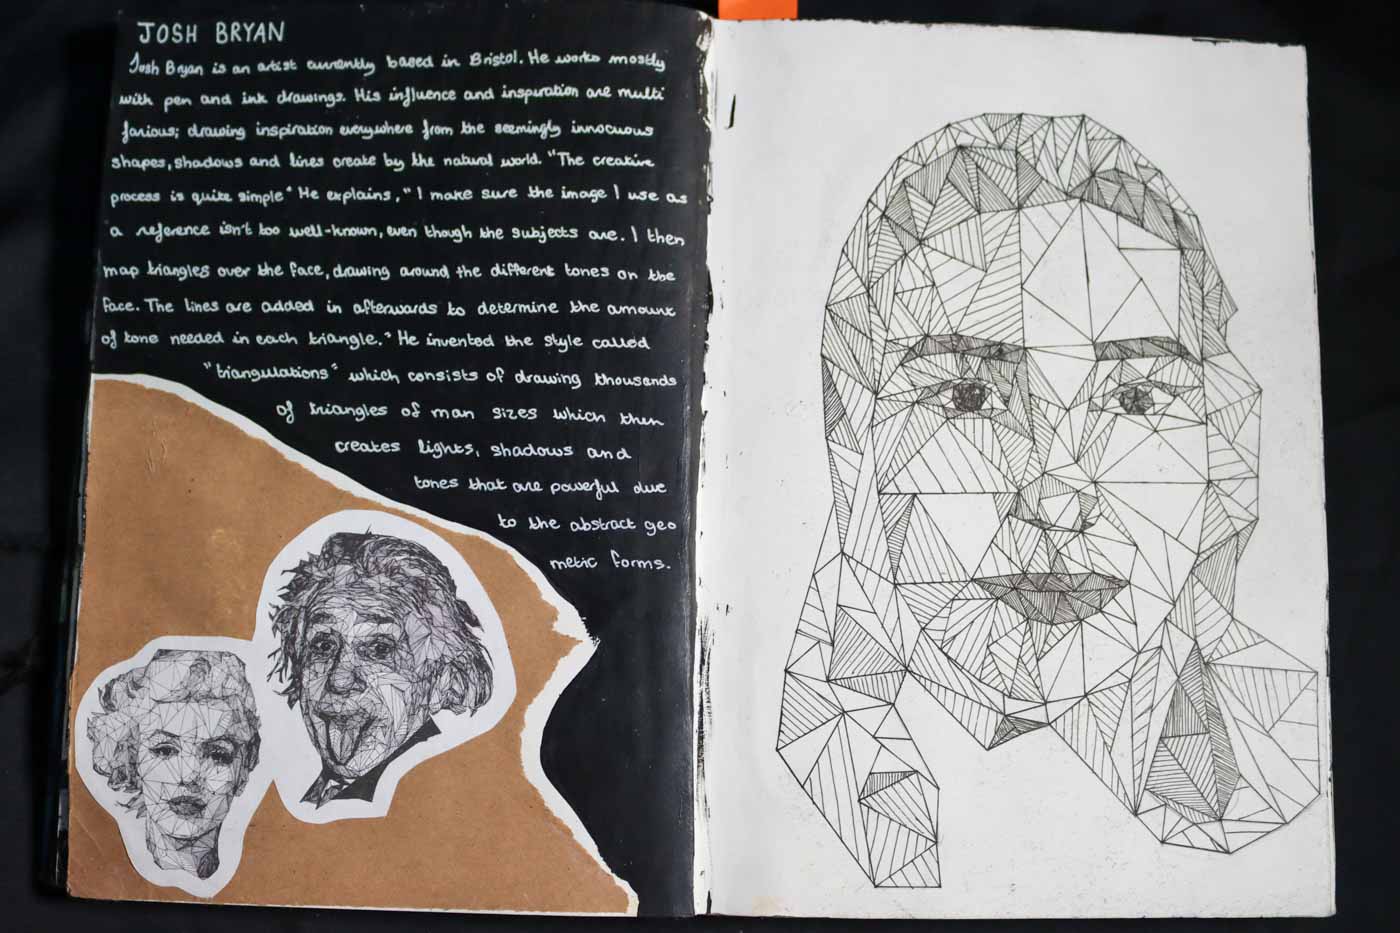 JOSH BRYAN
Josh Bryan is an artist currently based in Bristol. He works mostly
with pen and ink drawings. His influence and inspiration are multi
farious; drawing inspiration everywhere from the seemingly innocuous
shapes, shadows and lines create by the natural world. "The creative
process is quite simple" He explains, "I make sure the image I use as
a reference isn't too well-known, even though the subjects are. I then
map triangles over the face, drawing around the different tones on the
face. The lines are added in afterwards to determine the amount
of tone needed in each triangle." He invented the style called
"triangulations" which consists of drawing thousands
of triangles of man sizes which then
creates lights, shadows and
tones that are powerful due
to the abstract geo
metic forms.